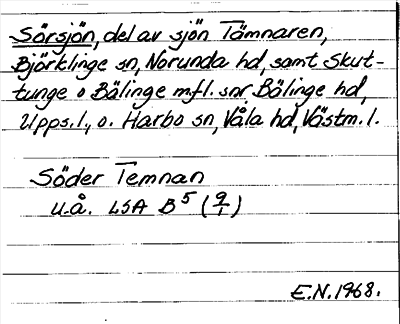 Sörsjön, del av sjön Tämnaren,
Björklinge sn, Norunda hd, samt Skut-
tunge o Bälinge m.fl. snr, Bälinge hd,
Upps.l., o. Harbo sn, Våla hd, Västm.l.
Söder Temnan
u.å. LSA B5 (9/1)
E.N. 1968.